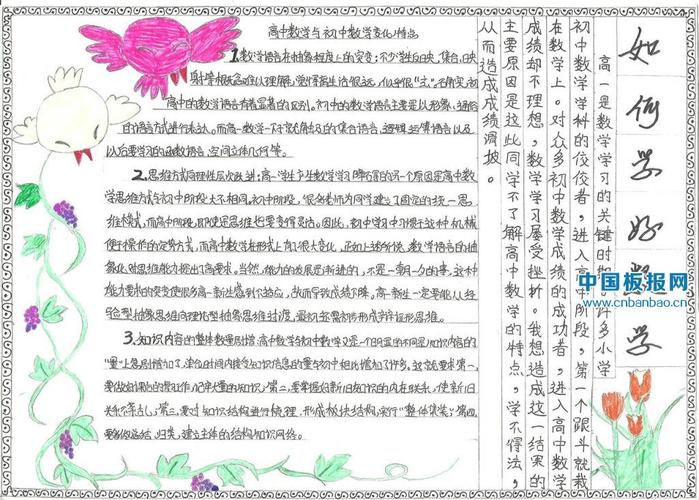 如何学好数学
高一是数学学习的关键时期许多小学
初中数学学科的佼佼者,进入高中阶段,第一个跟斗就栽
在数学上。对众多初中数学成绩的成功者,进入高中数学
成绩却不理想,数学学习屡受挫折。我想造成这一结果的
主要原因是这些同学不了解高中数学的特点,学不得法,
从而造成成绩滑坡。
高中数学与初中数学变化特点
1.数学语言在抽象程度上的突变:不少学生反映,集合、映
射等概念难以理解,觉得离生活很远,似乎很“玄”。不确实,初
高中的数学语言有着显著的区别。初中的数学主要是以形象、通俗
的语言方式进行表达。而高一数学一下子就触及的集合语言、逻辑运算语言以及
以后要学习的函数语言、空间立体几何等。
2.思维方式向理性层次跃进:高一学生产生数学学习障碍的另一个原因是高中数
学思维方式与初中阶段大不相同。初中阶段,很多老师为同学建立了固定的统一思
维模式,而高中阶段,即使是思维也要变得灵活。因此,初中学习中习惯于这种机械
便于操作的定势方式,而高中数学在形式上有了很大变化,正如上述所谈,数学语言的抽
象化对思维能力提出了高要求。当然,能力的发展是渐进的,不是一朝一夕的事,这种
能力要求的突变使很多高一新生感到不适应,故而导致成绩下降。高一新生一定要能从经
验型抽象思维向理论型抽象思维过渡,最初还需初步形成辩证形思维。
3.知识内容的整体数量剧增:高中数学与初中数学又一个明显的不同是知识内容的
“量”上急剧增加了,单位时间内接受知识信息的量与初中相比增加了许多。这就要求第一,
要做好课后的复习工作,记牢大量的知识;第二,要掌握好新旧知识的内在联系,使新旧
关系不紊乱;第三,要对知识结构进行梳理,形成板块结构,实行“整体集装”;第四,
要多做总结、归类,建立主体的结构知识网络。
中国板报网
www.cnbanbao.cn